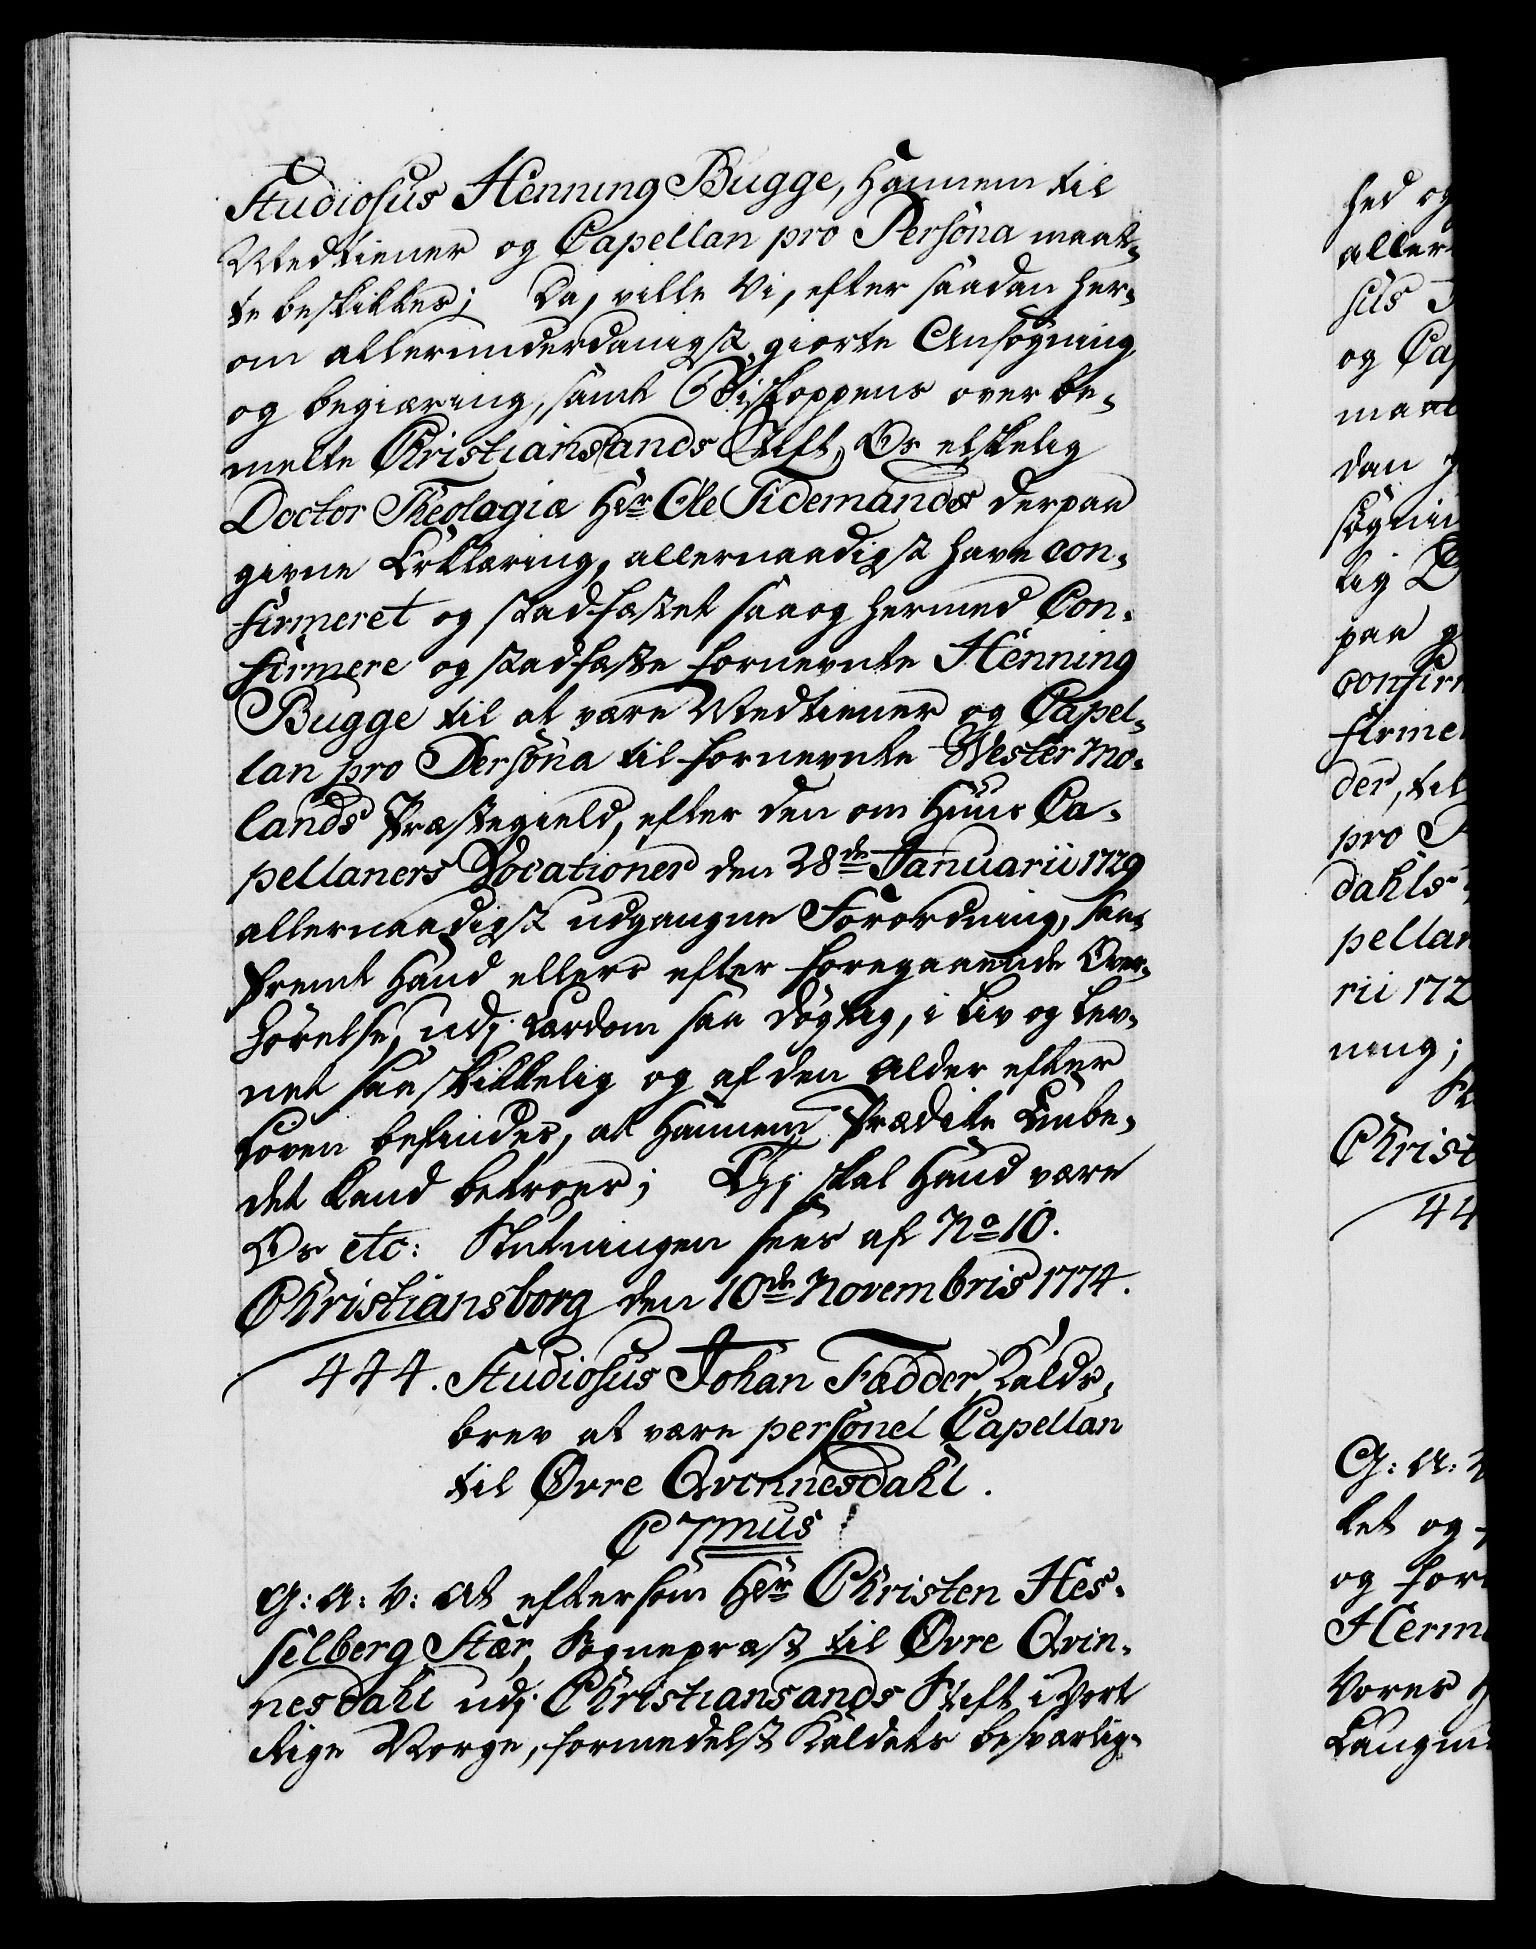 Studiosus Henning Bugge, hannem til
Medtiener og Capellan pro Persona maat-
te beskikkes; Da, ville Vi, efter saadan her-
om allerunderdanigst giorte Ansøgning
og begiæring, samt Biskoppens over be-
melte Christiansands Stift, Os elskelig
Doctor Theologiæ Hr Ole Tidemands derpaa
givne Erklæring, allernaadigst have con-
firmeret og stadfæstet saa og hermed Con-
firmere og stadfæste fornevnte Henning
Bugge til at være Medtiener og Capel-
lan pro Persona til fornevnte Wester Mo-
lands Præstegield, efter den om Huus Ca-
pellaners Vocationer den 28de Januarii 1729
allernaadigst udgangne Forordning, saa-
fremt Hand ellers efter foregaaende Over-
hørelse, udj Lærdom saa døgtig, i Liv og Lev-
net saa skikkelig og af den Alder efter
Loven befindes, at hannem Prædike Embe-
det kand betroes; Thj skal Hand være
Os etc: Slutningen sees af No 10.
Christiansborg den 10de Novembris 1774.
444. Studiosus Johan Fædder, Kalds-
brev at være personel Capellan
til Øvre Qvinnesdahl.
C 7mus
G: A: V: At eftersom Hr Christen Hes-
selberg Stær, Sognepræst til Øvre Qvin-
nesdahl udj Christiansands Stift i Vort
Rige Norge, formedelst Kaldets besværlig-
hed og
aller-
sus
og Cap
maat
dan
søgnin
lig D
paa g
confirm
firme
der, til
pro P
dahls
pellan
rii 172
ning;
Christ
44
G: A: V
ket og
og for
Herm
Vores
Langm